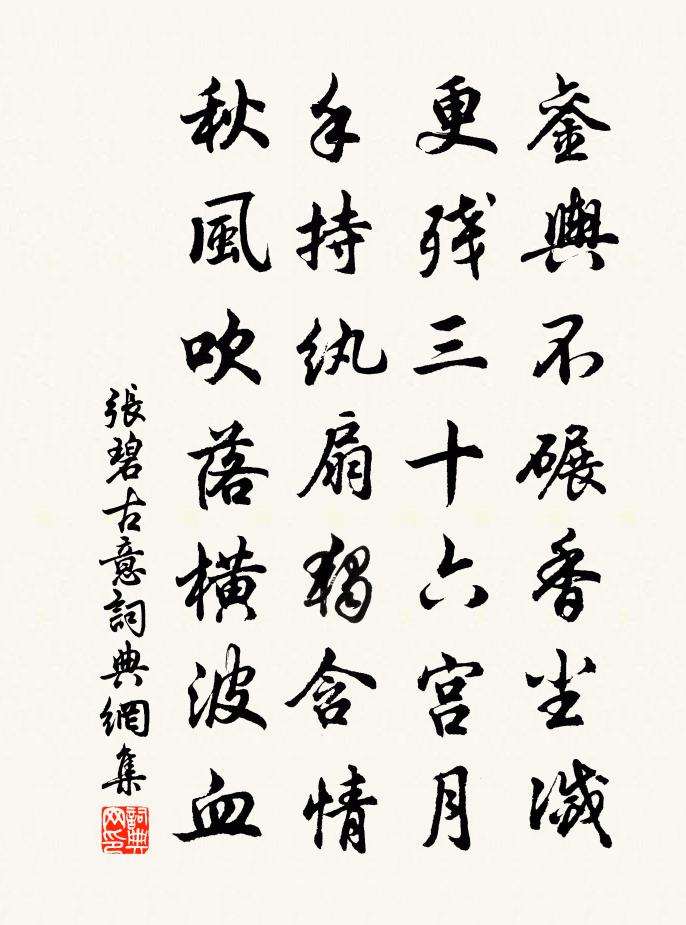 銮輿不碾香尘滅
更残三十六宮月
手持紈扇獨含情
秋風吹落横波血
張碧古意詞典網集
詞典
网印